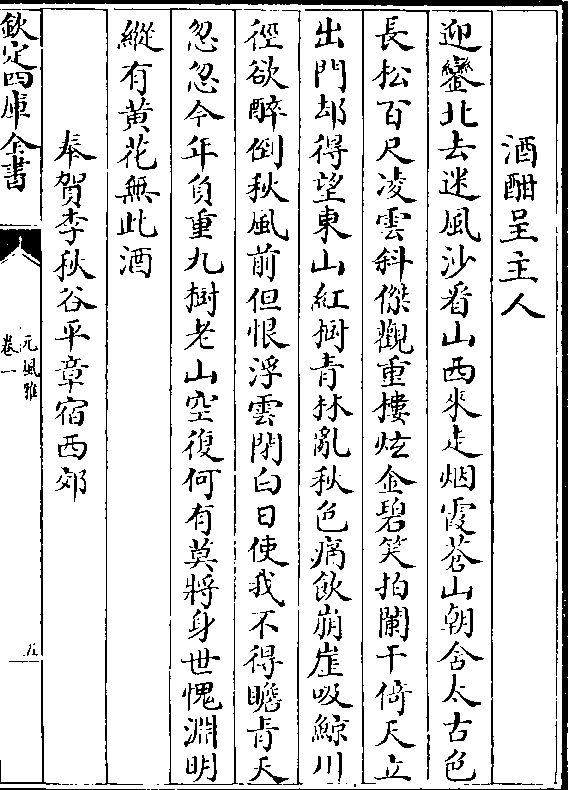 酒酣呈主人
迎鑾北去迷風沙看山西來走烟霞蒼山朝含太古色
長松百尺凌雲斜傑觀重樓炫金碧笑拍闌干倚天立
出門却得望東山紅樹青林亂秋色痛飲崩崖吸鯨川
徑欲醉倒秋風前但恨浮雲閉白日使我不得瞻青天
忽忽今年負重九樹老山空復何有莫將身世愧淵明
縱有黄花無此酒
奉賀李秋谷平章宿西郊
欽定四庫全書
元風雅
卷一
五